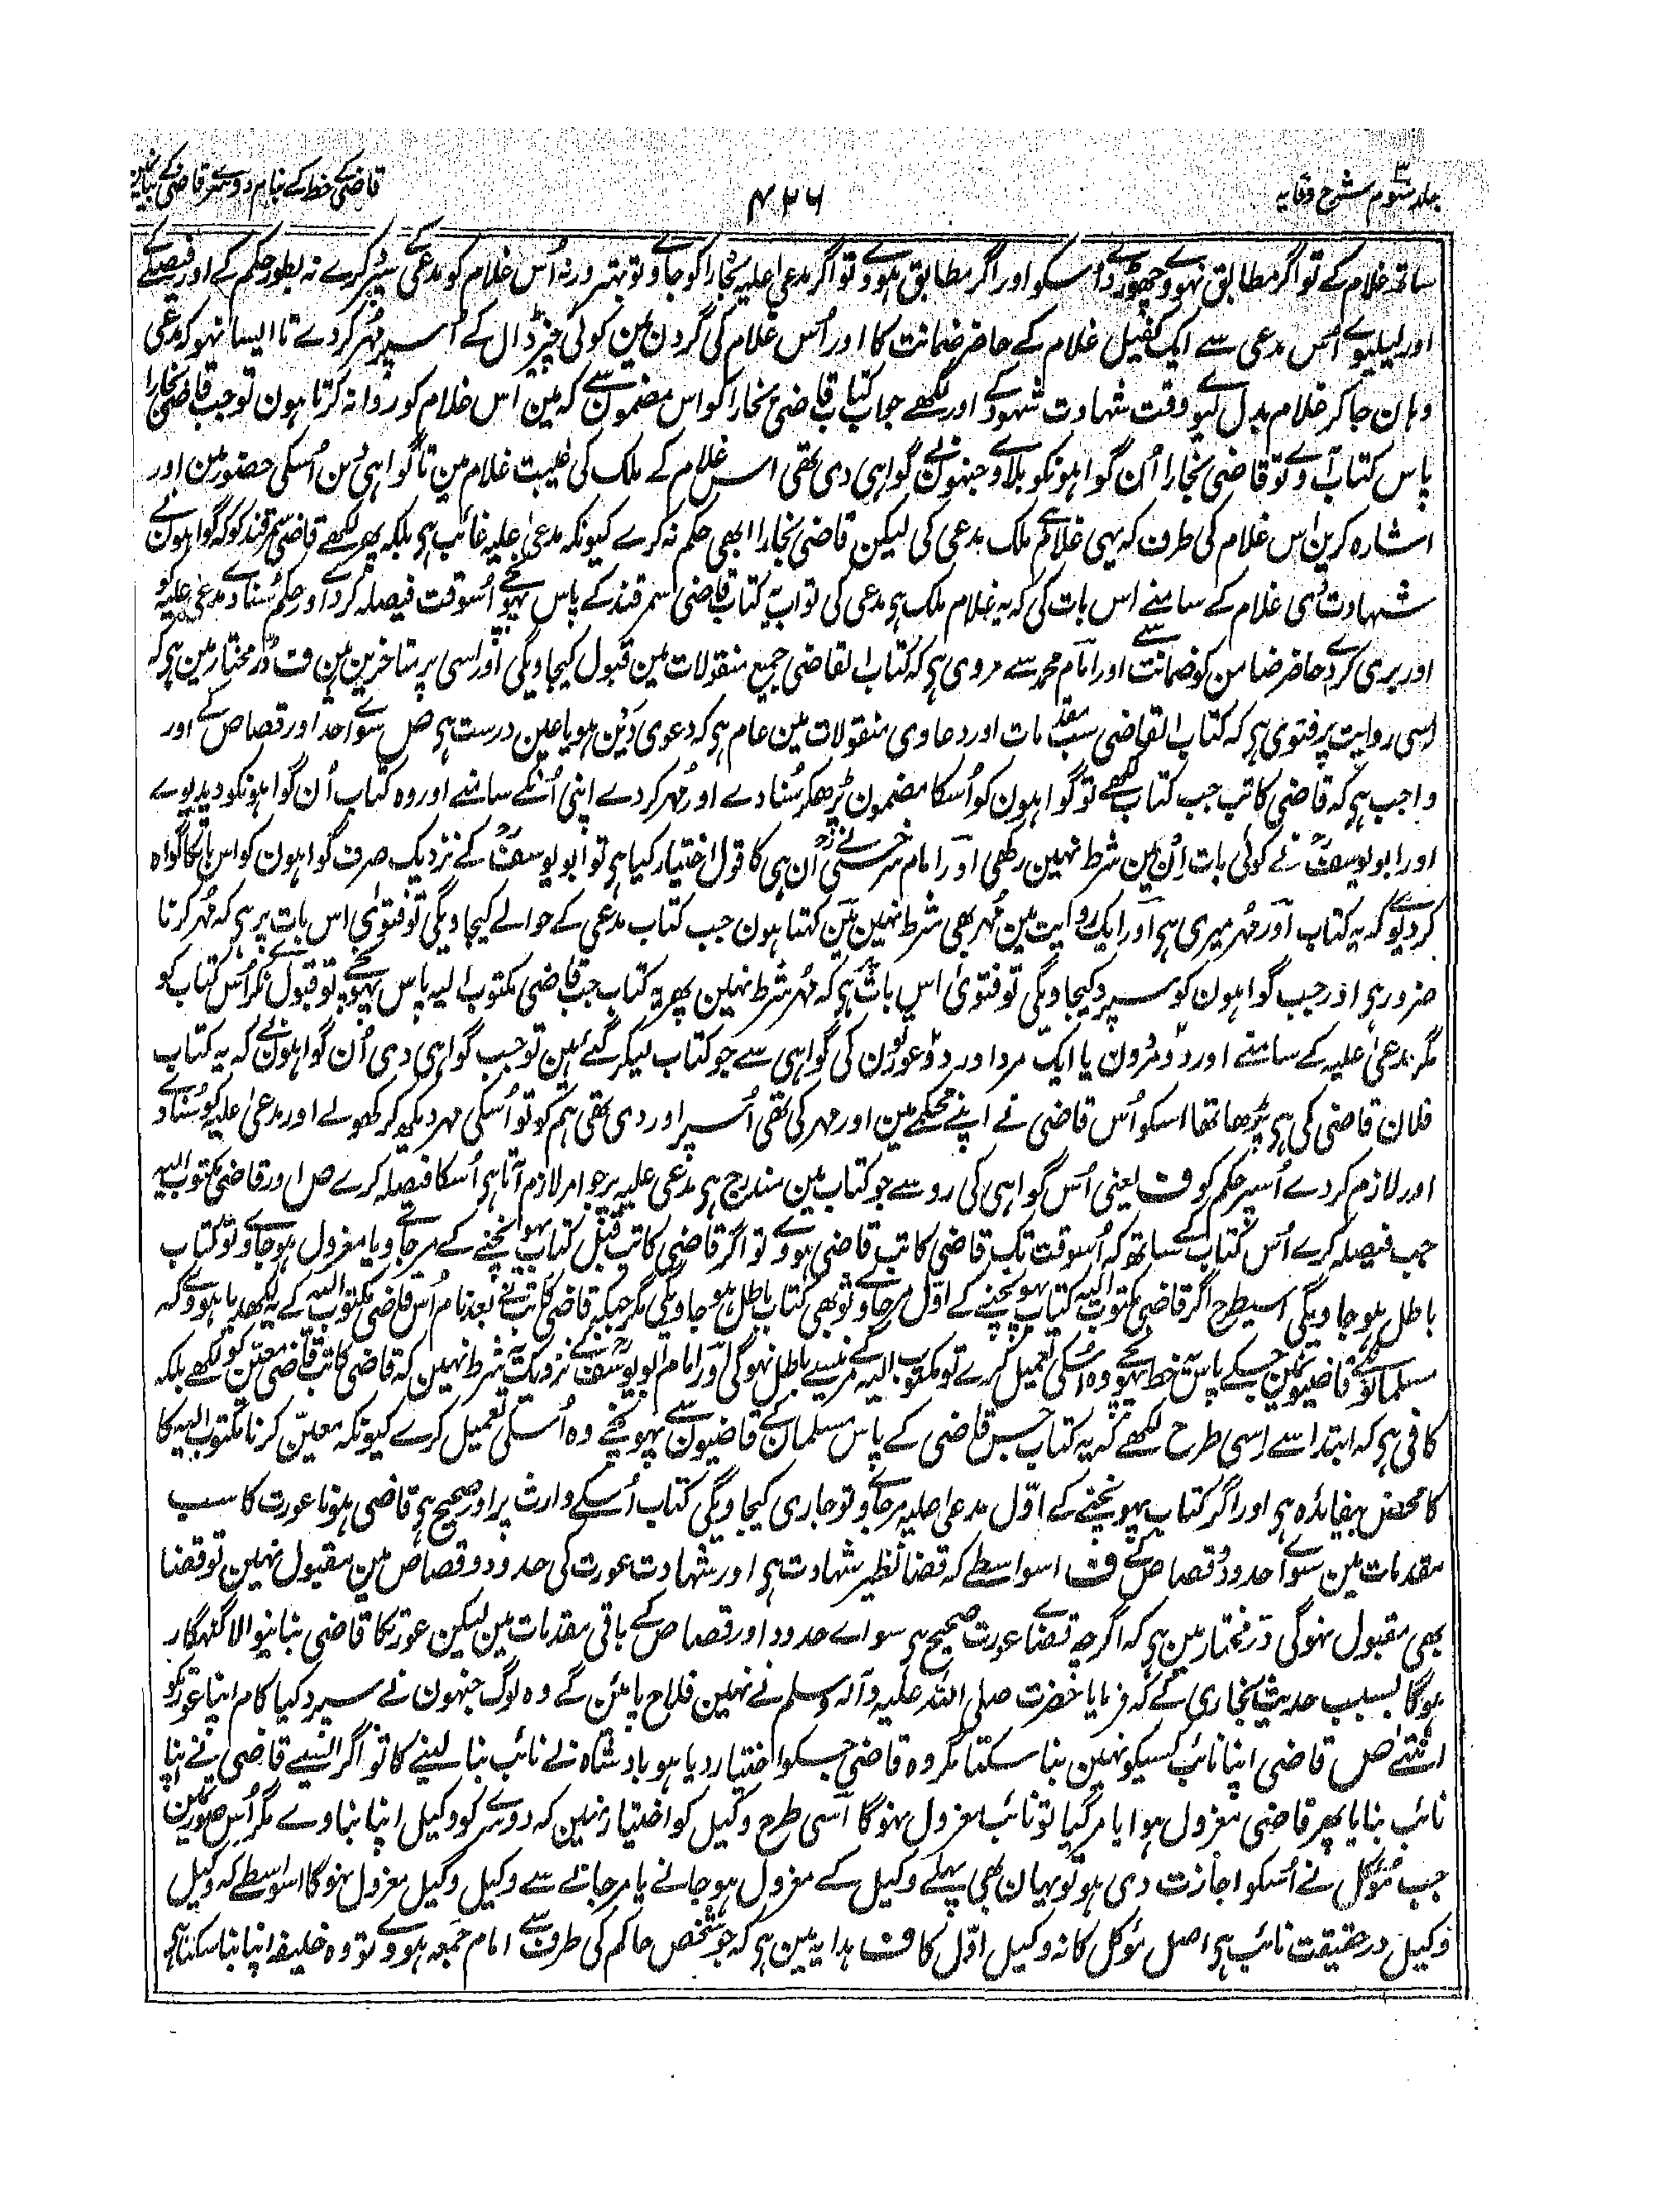 جلد سوم شرح وقایہ
۴۳۶
قاضی کے خط کے بنام دوسرے قاضی کے بیان مین
ساتھ غلام کے تو اگر مطابق نہووے چھوڑ دے اسکو اور اگر مطابق ہووے تو اگر مدعیٰ علیہ بخارا کو جاوے تو بہتر ورنہ اُس غلام کو مدعی کے سپرد کرے نہ بطور حکم کے اور فیصلے کے
اور لیلیوے اُس مدعی سے ایک کفیل غلام کے حاضر ضمانت کا اور اُس غلام کی گردن مین کوئی چیز ڈال کے اُسپر مُہر کردے تا ایسا نہو کہ مدعی
وہان جاکر غلام بدل لیوے وقت شہادت شہود کے اور لکھے جواب کتاب قاضی بخارا کو اس مضمون سے کہ مین اس غلام کو روانہ کرتا ہون تو جب قاضی بخارا
پاس کتاب آوے تو قاضی بخارا اُن گواہونکو بلاوے جنہون نے گواہی دی تھی اس غلام کے ملک کی غیبت غلام مین تا گواہی دین اُسکی حضور مین اور
اشارہ کرین اس غلام کی طرف کہ یہی غلام ہے ملک مدعی کی لیکن قاضی بخارا ابھی حکم نہ کرے کیونکہ مدعیٰ علیہ غائب ہی بلکہ پھر لکھے قاضی سمرقند کو کہ گواہون نے
شہادت دی غلام کے سامنے اس بات کی کہ یہ غلام ملک ہی مدعی کی تو اب یہ کتاب قاضی سمرقند کے پاس پہونچے اُسوقت فیصلہ کردے اور حکم سُنادے مدعیٰ علیہ کو
اور بری کردے حاضر ضامن کو ضمانت سے اور امام محمد سے مروی ہی کہ کتاب القاضی جمیع منقولات مین قبول کیجاویگی اور اسی پر متاخرین ہین ف دُر مختار مین ہی کہ
اسی روایت پر فتوی ہی کہ کتاب القاضی سب مقدمات اور دعاوی منقولات مین عام ہی کہ دعوی دَین ہو یا عین درست ہی ص سواے حد اور قصاص کے اور
واجب ہی کہ قاضی کاتب جب کتاب لکھے تو گواہون کو اُسکا مضمون پڑھکر سُنادے اور مُہر کردے اپنی اُنکے سامنے اور وہ کتاب اُن گواہونکو دیدیوے
اور ابو یوسف رح نے کوئی بات اِن مین شرط نہین رکھی اور امام سرخسی رح نے اُن ہی کا قول اختیار کیا ہی تو ابو یوسف رح کے نزدیک صرف گواہون کو اس بات کا گواہ
کردیوے کہ یہ کتاب اور مُہر میری ہی اور ایک روایت مین مُہر بھی شرط نہین مین کہتا ہون جب کتاب مدعی کے حوالے کیجاویگی تو فتوی اس بات پر ہی کہ مُہر کرنا
ضرور ہی اور جب گواہون کو سپرد کیجاویگی تو فتویٰ اس بات پر ہی کہ مُہر شرط نہین پھر یہ کتاب جب قاضی مکتوب الیہ پاس پہونچے تو قبول نکرے اُس کتاب کو
مگر مدعیٰ علیہ کے سامنے اور دو مردون یا ایک مرد اور دو عورتون کی گواہی سے جو کتاب لیکر گئے ہین تو جب گواہی دی اُن گواہون نے کہ یہ کتاب
فلان قاضی کی ہی پڑھا تھا اسکو اُس قاضی نے اپنے محکمے مین اور مہر کی تھی اُسپر اور دی تھی ہم کو تو اُسکی مہر دیکھ کر کھولے اور مدعیٰ علیہ کو سُناوے
اور لازم کردے اُسپر حکم کو ف یعنی اُس گواہی کی رو سے جو کتاب مین مندرج ہی مدعیٰ علیہ پر جو امر لازم آتا ہی اُسکا فیصلہ کرے ص اور قاضی مکتوب الیہ
جب فیصلہ کرے اُس کتاب کے ساتھ کہ اُسوقت تک قاضی کاتب قاضی ہووے تو اگر قاضی کاتب قبل کتاب پہونچنے کے مرجاوے یا معزول ہوجاوے تو کتاب
باطل ہوجاویگی اسیطرح اگر قاضی مکتوب الیہ کتاب پہونچنے کے اوّل مرجاوے تو بھی کتاب باطل ہوجاویگی مگر جبکہ قاضی کاتب نے بعد نام اُس قاضی مکتوب الیہ کے یہ لکھدیا ہووے کہ
مسلمانون کے قاضیون مین سے جسکے پاس خط پہونچے وہ اسکی تعمیل کرے تو مکتوب الیہ کے مرنے سے باطل نہوگی اور امام ابو یوسف رح کے نزدیک یہ شرط نہین کہ قاضی کاتب قاضی معیّن کو لکھے بلکہ
کافی ہی کہ ابتدا سے اسی طرح لکھے کہ یہ کتاب جس قاضی کے پاس مسلمان کے قاضیون سے پہونچے وہ اُسکی تعمیل کرے کیونکہ معیّن کرنا مکتوب الیہ کا
کا محض بیفایدہ ہی اور اگر کتاب پہونچنے کے اوّل مدعیٰ علیہ مرجاوے تو جاری کیجاویگی کتاب اُسکے وارث پر اور صحیح ہی قاضی ہونا عورت کا سب
مقدمات مین سواے حدود و قصاص کے ف اسواسطے کہ قضا نظیر شہادت ہی اور شہادت عورت کی حدود و قصاص مین مقبول نہین تو قضا
بھی مقبول نہوگی در مختار مین ہی کہ اگرچہ قضاے عورت صحیح ہی سواے حدود اور قصاص کے باقی مقدمات مین لیکن عورتکا قاضی بنانیوالا گنہگار
ہوگا بسبب حدیث بخاری کے کہ فرمایا حضرت صلی اللہ علیہ وآلہ وسلم نے نہین فلاح پائین گے وہ لوگ جنہون نے سپرد کیا کام اپنا عورتکو
انتہیٰ ص قاضی اپنا نائب کسیکو نہین بنا سکتا مگر وہ قاضی جسکو اختیار دیا ہو بادشاہ نے نائب بنا لینے کا تو اگر ایسے قاضی نے اپنا
نائب بنایا پھر قاضی معزول ہوا یا مرگیا تو نائب معزول نہوگا اسی طرح وکیل کو اختیار نہین کہ دوسرے کو وکیل اپنا بناوے مگر اُس صورت مین
جب مُوکل نے اُسکو اجازت دی ہو تو یہان بھی پہلے وکیل کے معزول ہوجانے یا مرجانے سے وکیل وکیل معزول نہوگا اسواسطے کہ وکیل
وکیل درحقیقت نائب ہی اصل مُوکل کا نہ وکیل اوّل کا ف ہدایہ مین ہی کہ جو شخص حاکم کی طرف سے امام جمعہ ہووے تو وہ خلیفہ اپنا بنا سکتا ہی